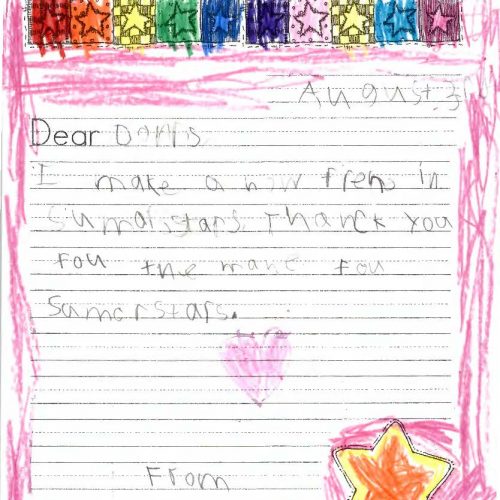 August 3
Dear Donrs
I make a now frens in
Sumarstars. Thanck you
fou the mane fou
Samorstars.
From